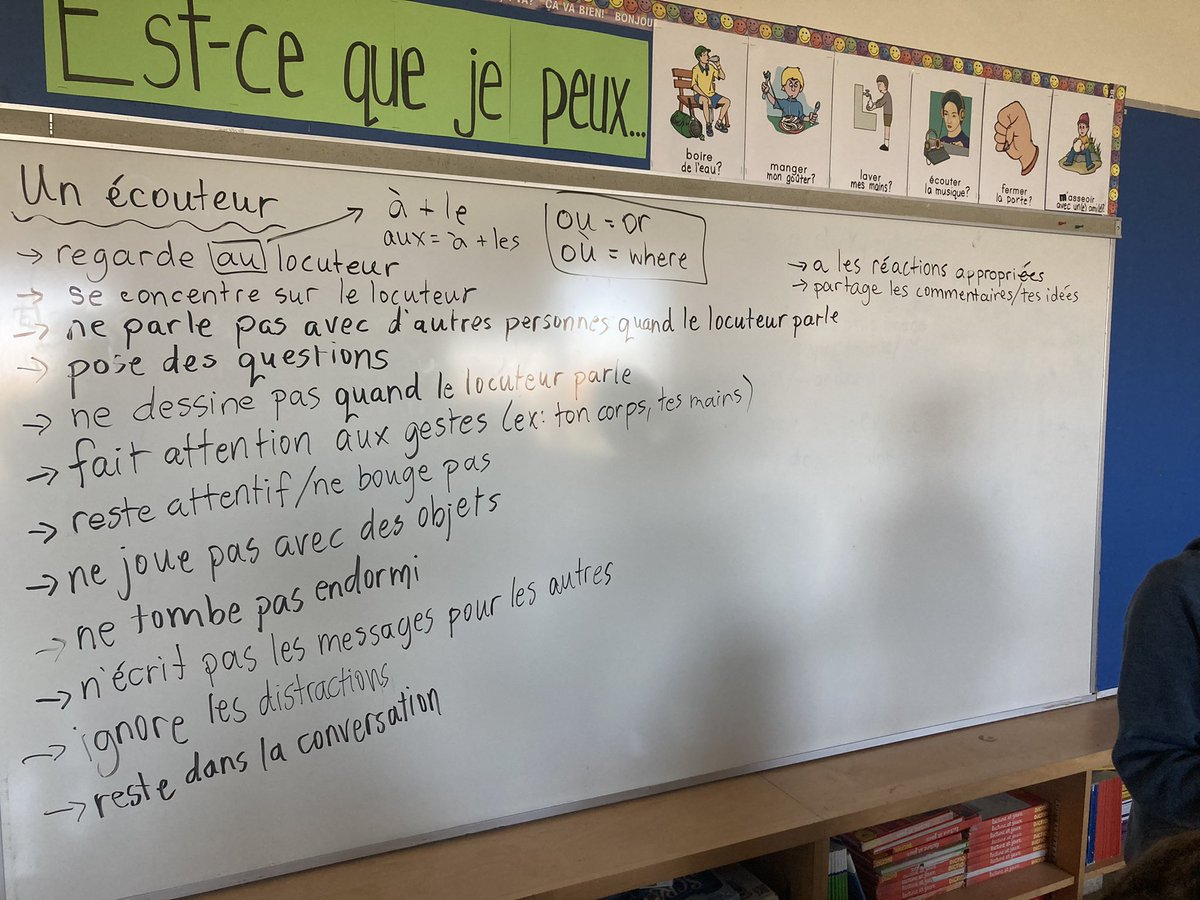 ÇA VA BIEN! BONJOU
Est-ce que je peux...
boire
de l'eau?
manger
mon goûter?
laver
mes mains?
écouter
la musique?
fermer
la porte?
m'asseoir
avec un(e) ami(e)?
Un écouteur
à + le
aux = à + les
ou = or
où = where
→ regarde au locuteur
→ se concentre sur le locuteur
→ ne parle pas avec d'autres personnes quand le locuteur parle
→ pose des questions
→ ne dessine pas quand le locuteur parle
→ fait attention aux gestes (ex: ton corps, tes mains)
→ reste attentif/ne bouge pas
→ ne joue pas avec des objets
→ ne tombe pas endormi
→ n'écrit pas les messages pour les autres
→ ignore les distractions
→ reste dans la conversation
→ a les réactions appropriées
→ partage les commentaires/tes idées